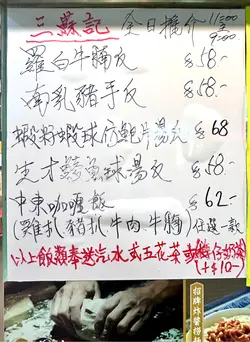 三蘇記 全日推介 11:00 9:00
羅白牛腩友 $58.-
南乳豬手友 $58.-
蝦籽蝦球片湯友 $68
生才鯪魚球湯友 $58.-
中東咖喱飯 $62.-
(雞扒 豬扒 牛肉 牛腩) 任選一款
以上飯類奉送汽水或五花茶或仔奶茶
(+$10-)
招牌炸醬撈